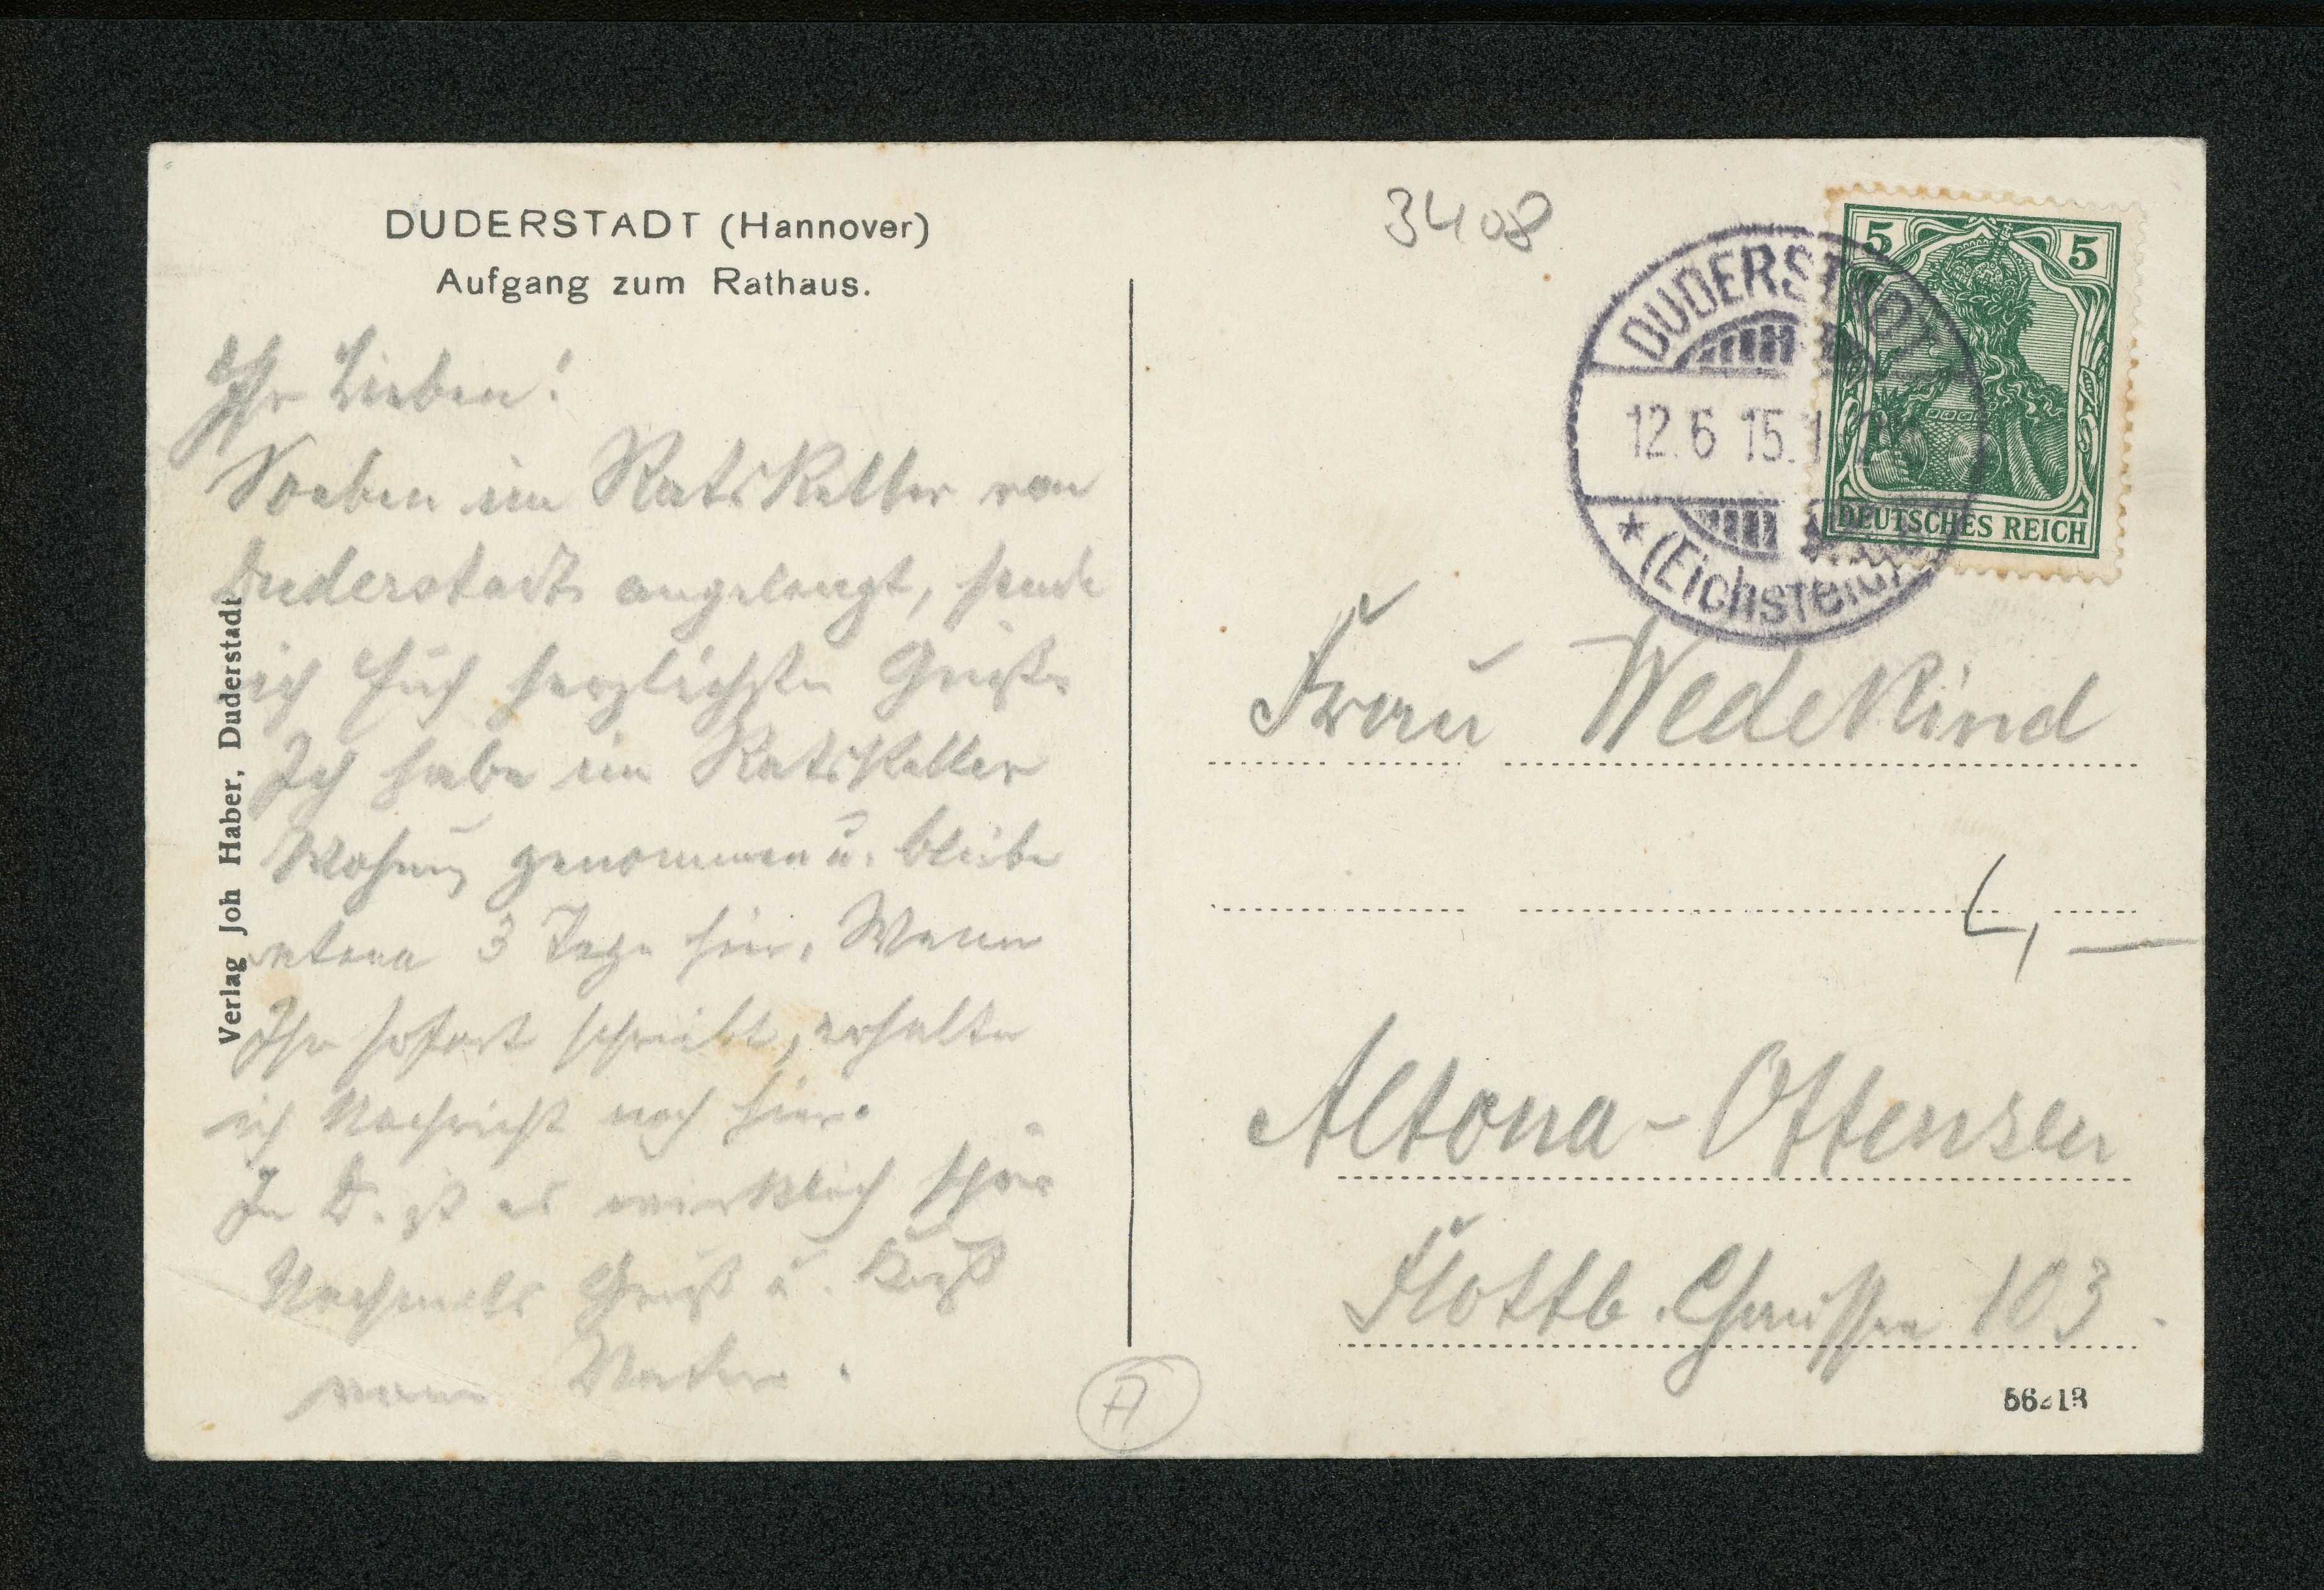 DUDERSTADT (Hannover)
Aufgang zum Rathaus.
Ihr Lieben!
Soeben im RatsKeller von
Duderstadt angelangt, sende
ich Euch herzlichste Grüße
Ich habe im RatsKeller
Wohnung genommen u. bleibe
etwa 3 Tage hier. Wenn
Ihr sofort schreibt, erhalte
ich Nachricht noch hier.
In D. ist es wirklich schön
Nochmals Gruß u. Kuß
vom Vater.
Verlag Joh Haber, Duderstadt
3408
DUDERSTADT
12.6 15.1
* (Eichsfeld)
5 5
DEUTSCHES REICH
Frau WedeKind
4,—
Altona-Ottensen
Flottb. Chaussee 103.
A